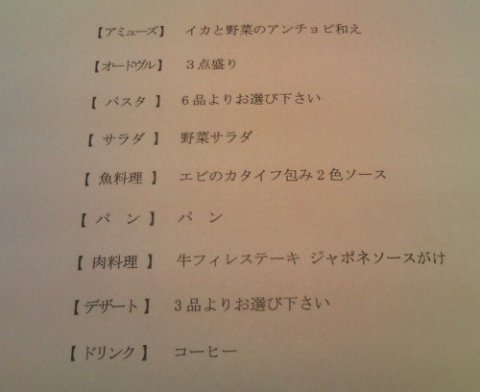 【アミューズ】 イカと野菜のアンチョビ和え
【オードヴル】 3点盛り
【 パスタ 】 6品よりお選び下さい
【 サラダ 】 野菜サラダ
【 魚料理 】 エビのカタイフ包み2色ソース
【 パ ン 】 パ ン
【 肉料理 】 牛フィレステーキ ジャポネソースがけ
【 デザート 】 3品よりお選び下さい
【 ドリンク 】 コーヒー